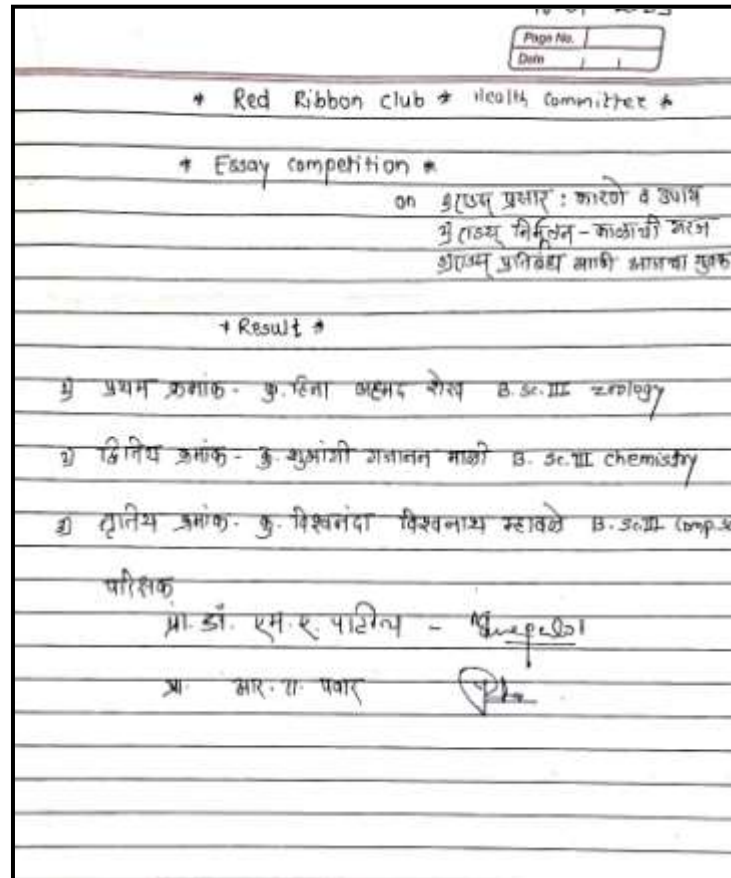 Page No.
Date
* Red Ribbon club * Health Committee *
* Essay competition *
on १) एडस् प्रसार : कारणे व उपाय
२) एडस् निर्मूलन - काळाची गरज
३) एडस् प्रतिबंध आणि आजचा युवक
* Result *
१) प्रथम क्रमांक - कु. हिना अहमद शेख B.Sc.III Zoology
२) द्वितिय क्रमांक - कु. शुभांगी गजानन माळी B.Sc.III chemistry
३) तृतिय क्रमांक - कु. विश्वनंदा विश्वनाथ म्हावळे B.Sc.III Comp.Sc
परिक्षक
प्रा. डॉ. एम. ए. पाटील -
प्रा. आर. ए. पवार